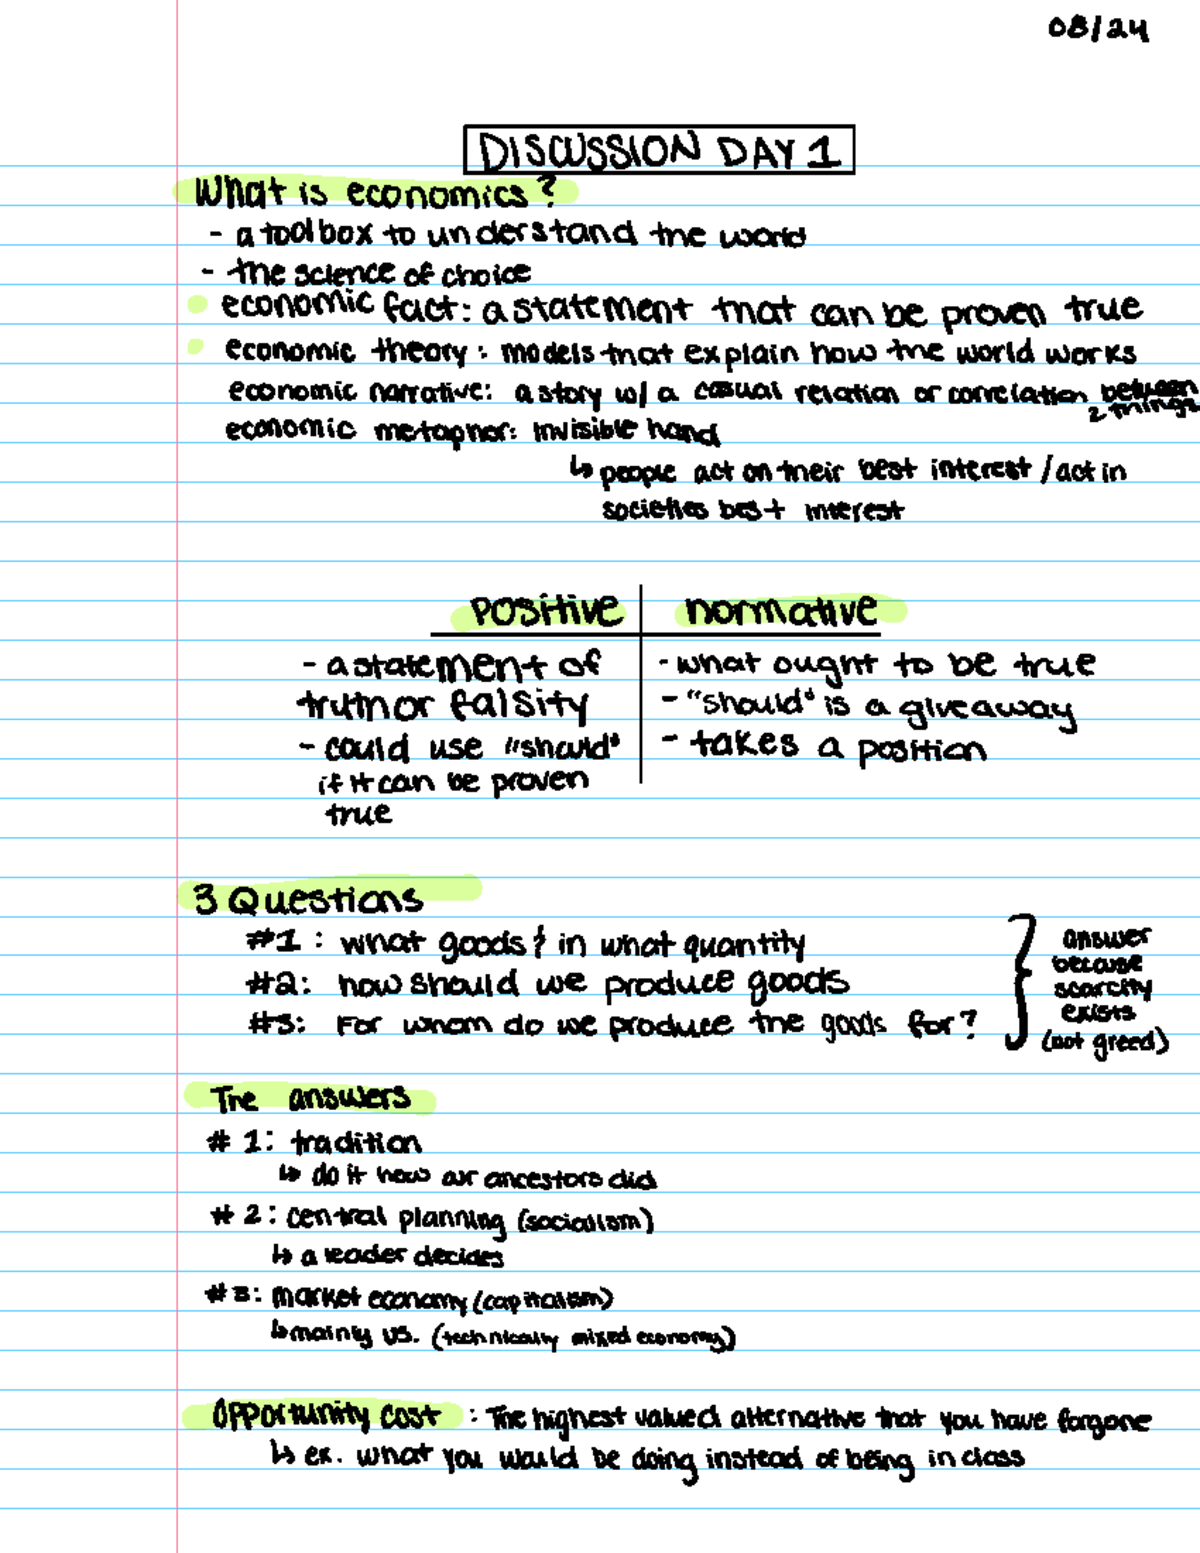 08/24
DISCUSSION DAY 1
What is economics?
- a toolbox to understand the world
- the science of choice
economic fact: a statement that can be proven true
economic theory: models that explain how the world works
economic narrative: a story w/ a casual relation or correlation between
2 things
economic metaphor: invisible hand
↳ people act on their best interest / act in
societies best interest
positive | normative
- a statement of | - what ought to be true
truth or falsity | - "should" is a giveaway
- could use "should" | - takes a position
if it can be proven
true
3 Questions
#1: what goods & in what quantity
#2: how should we produce goods
#3: For whom do we produce the goods for?
} answer
because
scarcity
exists
(not greed)
The answers
#1: tradition
↳ do it how our ancestors did
#2: central planning (socialism)
↳ a leader decides
#3: market economy (capitalism)
↳ mainly US. (technically mixed economy)
Opportunity cost: The highest valued alternative that you have forgone
↳ ex. what you would be doing instead of being in class